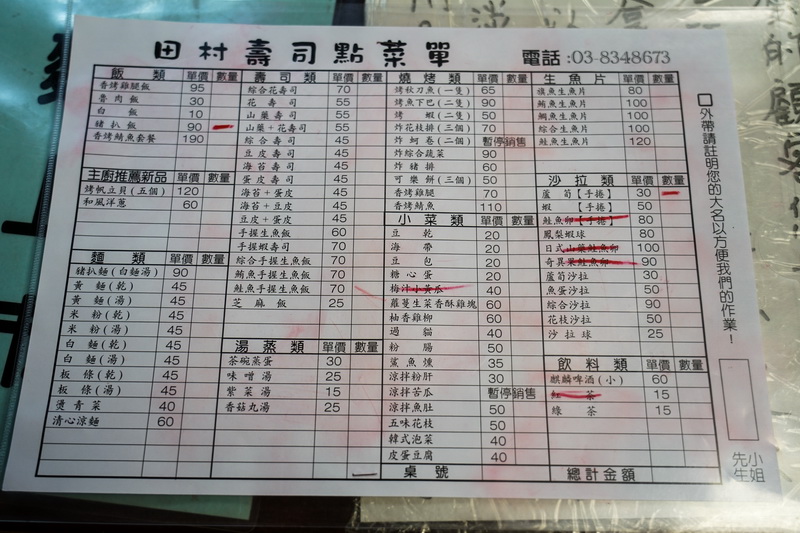 田村壽司點菜單
電話:03-8348673
飯類 單價 數量
香烤雞腿飯 95
魯肉飯 30
白飯 10
豬扒飯 90
香烤鯖魚套餐 190
主廚推薦新品 單價 數量
烤帆立貝(五個) 120
和風洋蔥 60
麵類 單價 數量
豬扒麵(白麵湯) 90
黃麵(乾) 45
黃麵(湯) 45
米粉(乾) 45
米粉(湯) 45
白麵(乾) 45
白麵(湯) 45
板條(乾) 45
板條(湯) 45
燙青菜 40
清心涼麵 60
壽司類 單價 數量
綜合花壽司 70
花壽司 55
山葉壽司 55
山葉+花壽司 55
綜合壽司 45
豆皮壽司 45
海苔壽司 45
蛋皮壽司 45
海苔+蛋皮 45
海苔+豆皮 45
豆皮+蛋皮 45
手握生魚飯 60
手握蝦壽司 70
綜合手握生魚飯 80
鮪魚手握生魚飯 70
鮭魚手握生魚飯 70
芝麻飯 25
湯蒸類 單價 數量
茶碗蒸蛋 30
味噌湯 25
紫菜湯 15
香菇丸湯 25
燒烤類 單價 數量
烤秋刀魚(一隻) 65
烤魚下巴(二隻) 90
烤蝦(二隻) 50
炸花枝排(三個) 70
炸蚵卷(二個) 暫停銷售
炸綜合蔬菜 90
炸豬排 60
可樂餅(三個) 50
香烤雞腿 70
香烤鯖魚 110
小菜類 單價 數量
豆乾 20
海帶 20
豆包 20
糖心蛋 20
梅汁小黃瓜 90
蘿蔓生菜香酥雞塊 60
柚香雞柳 60
過貓 40
粉腸 50
鯊魚燻 35
涼拌粉肝 30
涼拌苦瓜 暫停銷售
涼拌魚肚 50
五味花枝 50
韓式泡菜 40
皮蛋豆腐 40
桌號
生魚片 單價 數量
旗魚生魚片 80
鮪魚生魚片 100
鯛魚生魚片 100
綜合生魚片 100
鮭魚生魚片 120
沙拉類 單價 數量
蘆筍【手捲】 30
蝦【手捲】 50
鮭魚卵【手捲】 80
鳳梨蝦球 80
日式山藥鮭魚卵 100
奇異果鮭魚卵 90
蘆筍沙拉 30
魚蛋沙拉 50
綜合沙拉 90
花枝沙拉 50
沙拉球 25
飲料類 單價 數量
麒麟啤酒(小) 60
紅茶 15
綠茶 15
總計金額
□外帶請註明您的大名以方便我們的作業!
先生 小姐